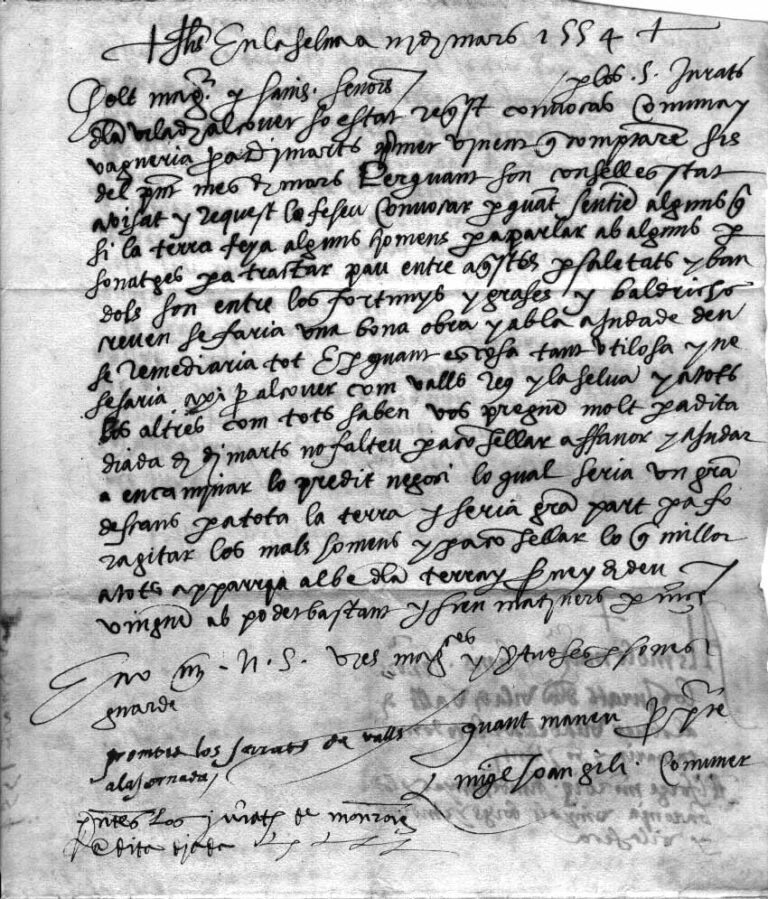 † Jhs En la selva a iii de mars 1554 †
Molt magchs y savis senors per los S. Jurats
dla vila de alcover so estat reqst convocas Comuna y
vagneria per a dimarts primer vinent q comptarem sis
del pnt mes de mars Perquant son conselles stat
avisat y request la feseu Convocar per quant sentiē alguns q
si la terra feya alguns homens per a parlar ab alguns per
sonatges per a tractar pau entre aqstes parsaletats y ban
dols son entre los fortunys y grases y baldrichs
creuen se faria una bona obra y ab la ajuda de deu
se remediaria tot E per quant es cosa tant utilosa y ne
sesaria axi per alcover com valls reus y la selva y a tots
los altres com tots saben vos pregue molt per a dita
diada de dimarts no falteu per aconsellar affavor y ajudar
a encaminar lo predit negosi lo qual seria un gra
descans per a tota la terra y seria gra part per a fo
ragitar los mals homens y per aconsellar lo q millor
a tots apparria al be dla terra y servey de deu
vingue ab poder bastant y sien matiners
N. S. vres magces y vertuoses persones
guarde
promte los jurats de valls quant maneu
a la jornada
migel Joan gili. Comuner
pntes Los jurats de montroig
a dita diada